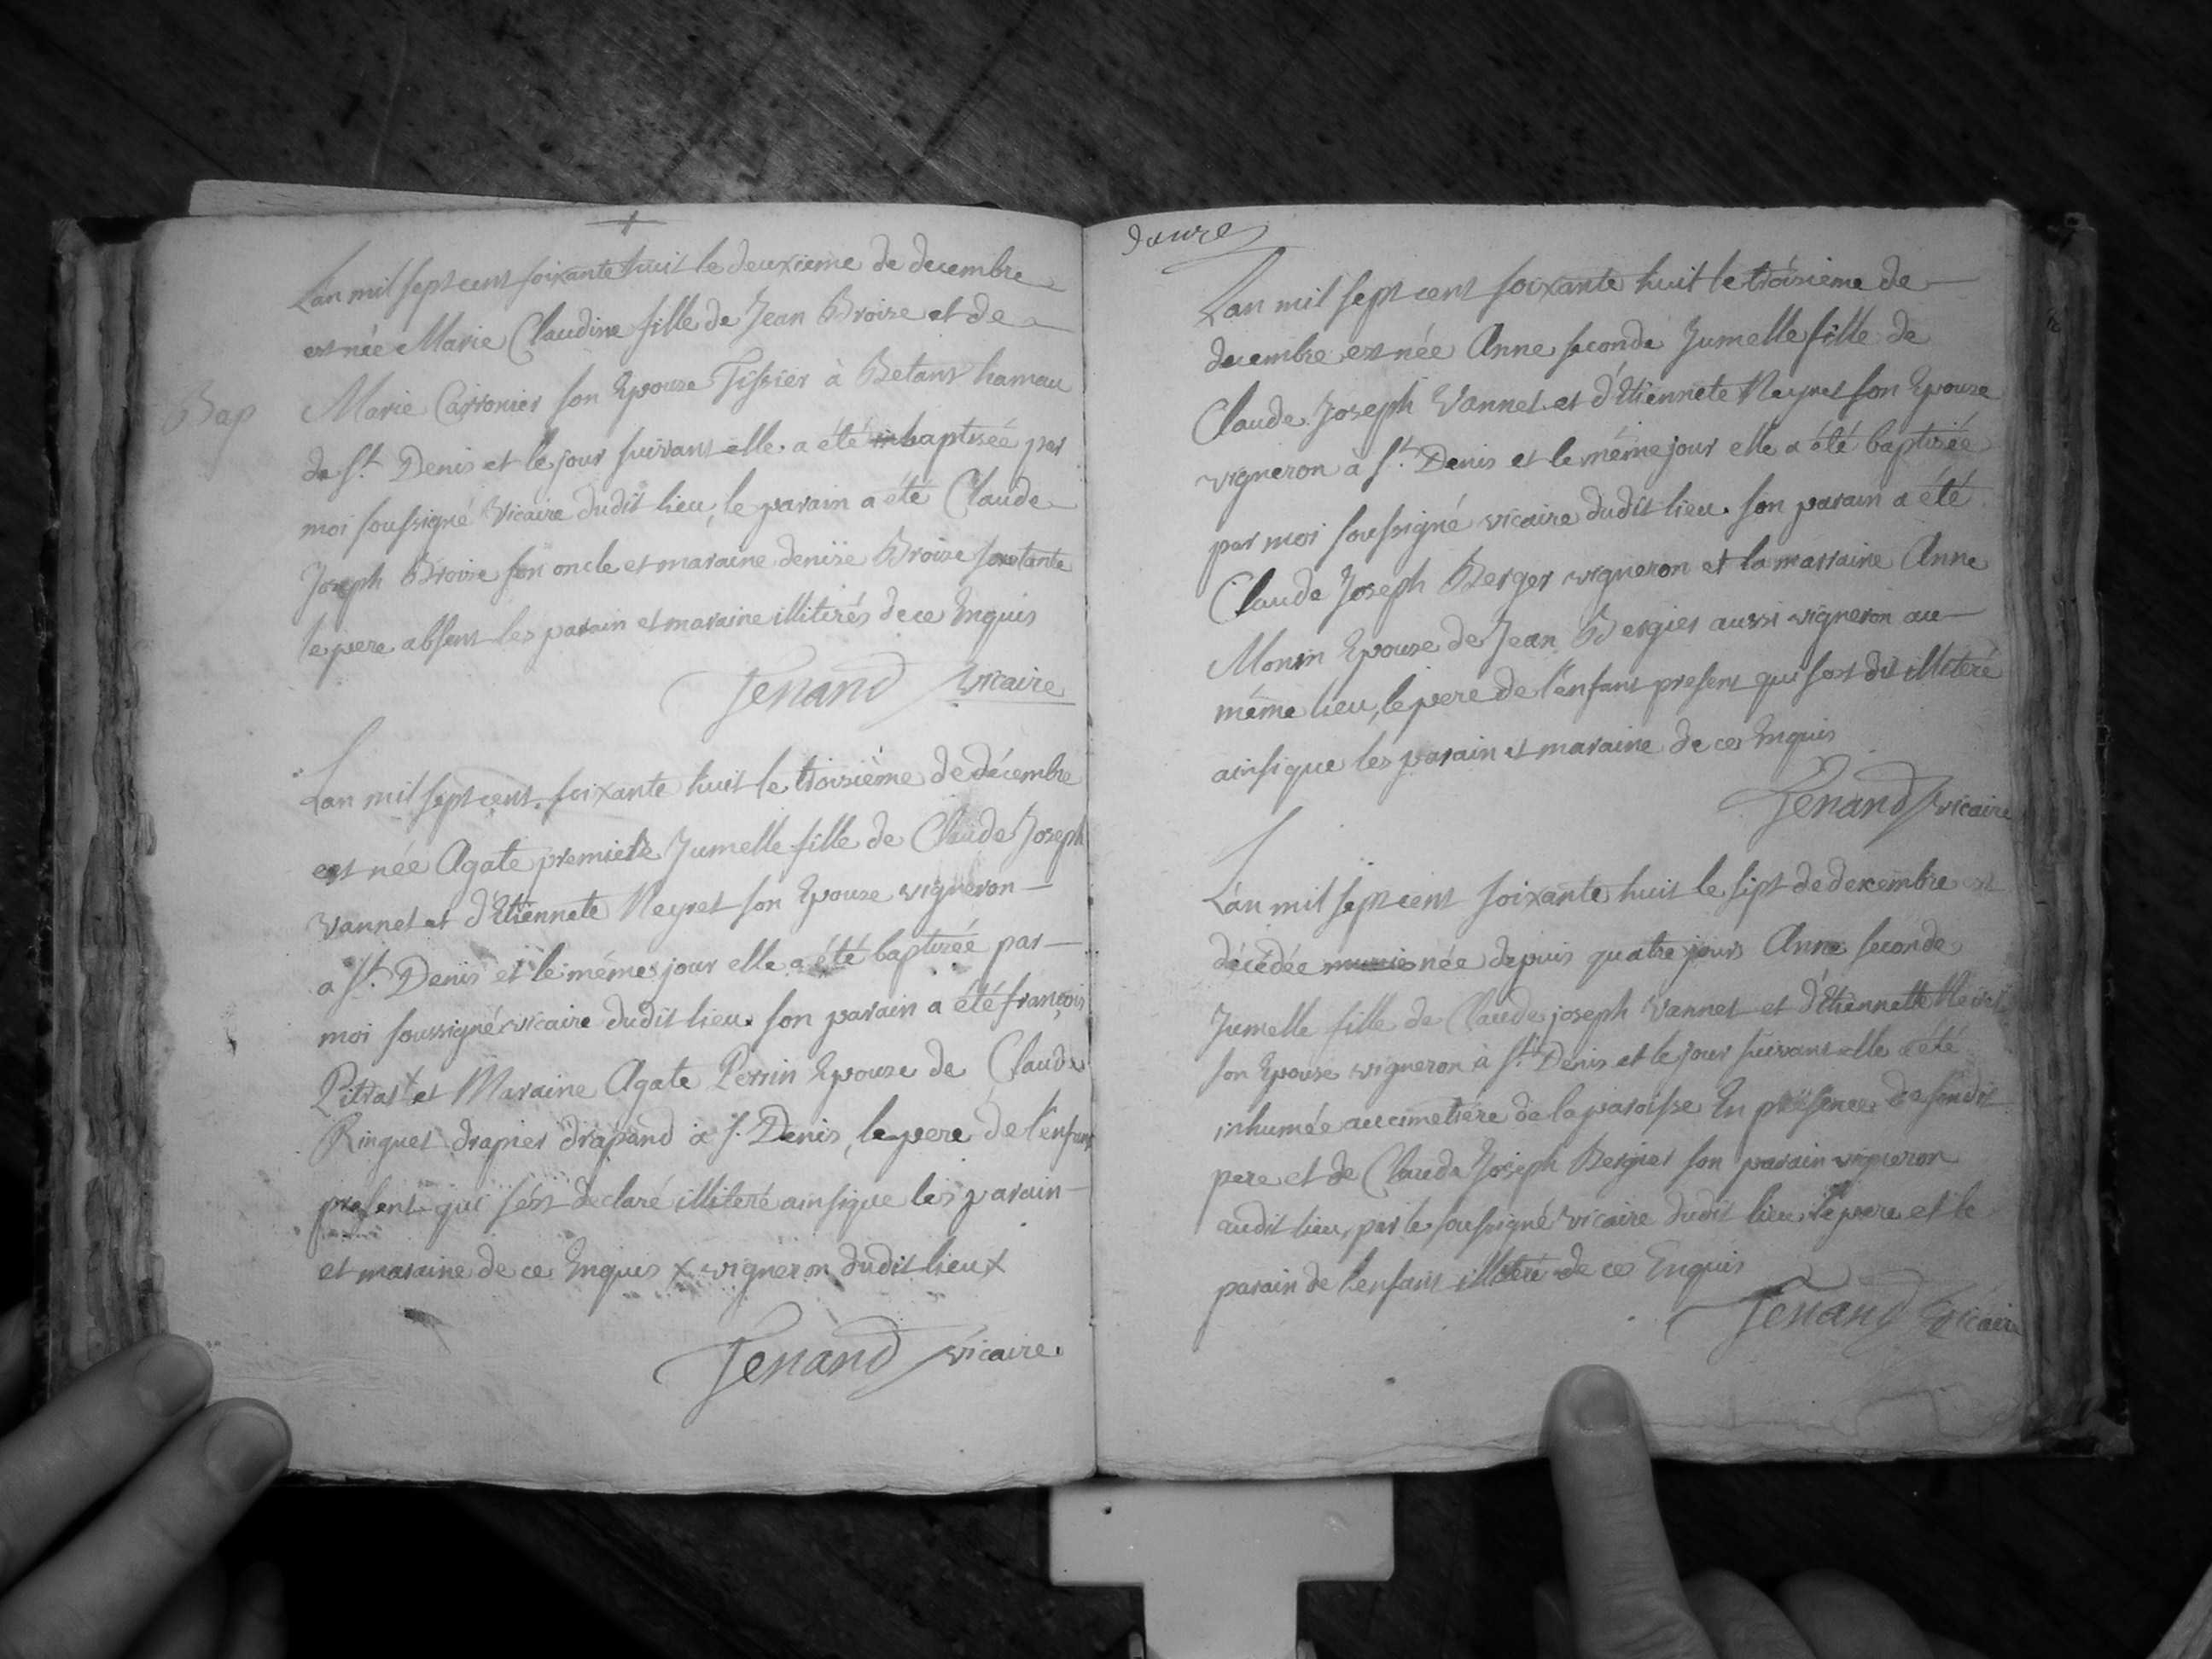 Lan mil sept cent soixante huit le deuxieme de decembre
est née Marie Claudine fille de Jean Broise et de
Bap
Marie Carronier son Epouse Tissier à Betant hamau
de St. Denis et le jour suivant elle a été baptisée par
moi soussigné Vicaire dudit lieu, le parain a été Claude
Joseph Broise son oncle et maraine denise Broise sa tante
le pere absent les parain et maraine illiterés de ce Enquis
Tenand vicaire
Lan mil sept cent soixante huit le troisième de décembre
est née Agate premiere Jumelle fille de Claude Joseph
Vannet et d'Etiennete Neyret son Epouse vigneron
a St. Denis et le même jour elle a été baptisée par
moi soussigné vicaire dudit lieu. son parain a été françois
Pitrat x et Maraine Agate Perrin Epouse de Claude
Ringuet drapier drapand à S. Denis, le pere de l'enfant
present qui s'est declaré illiteré ainsi que les parain
et maraine de ce Enquis x vigneron dudit lieu x
Tenand vicaire.
douze
Lan mil sept cent soixante huit le troisieme de
decembre est née Anne seconde Jumelle fille de
Claude Joseph Vannet et d'Etiennete Neyret son Epouse
vigneron à St. Denis et le même jour elle a été baptisée
par moi soussigné vicaire dudit lieu. son parain a été
Claude Joseph Berger vigneron et la marraine Anne
Monin Epouse de Jean Bergier aussi vigneron au
même lieu, le pere de l'enfant present qui s'est dit illiteré
ainsi que les parain et maraine de ce Enquis
Tenand vicaire
Lan mil sept cent soixante huit le sept de decembre est
décédée née depuis quatre jours Anne seconde
Jumelle fille de Claude joseph Vannet et d'Etiennette Neiret
son Epouse vigneron à St. Denis et le jour suivant elle a été
inhumée au cimetiere de la paroisse En présence de son dit
pere et de Claude Joseph Bergier son parain vigneron
audit lieu, par le soussigné vicaire dudit lieu, le pere et le
parain de l'enfant illiteré de ce Enquis
Tenand vicaire